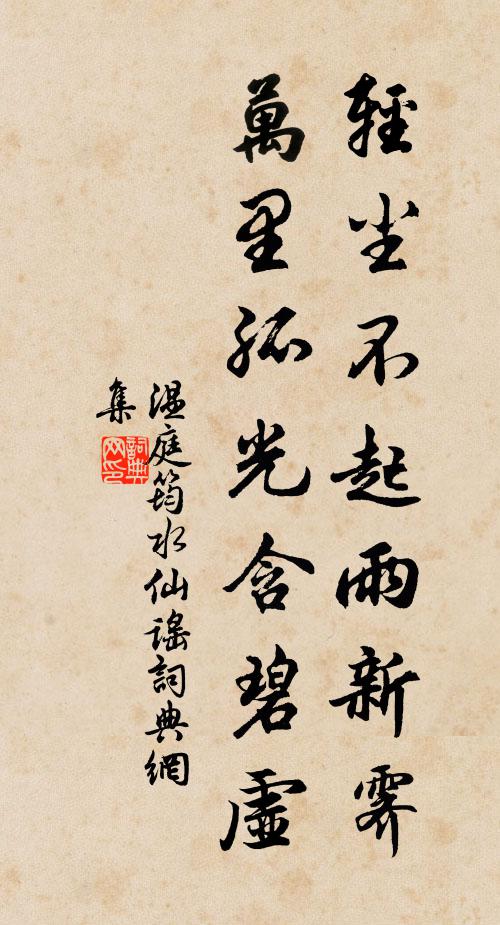 輕尘不起雨新霽
萬里孤光含碧虛
温庭筠水仙謠詞典網
集
詞典
网印